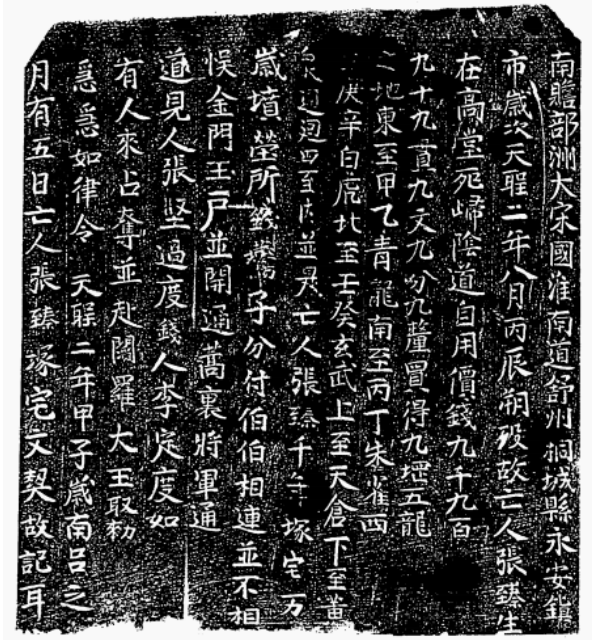 南贍部洲大宋國淮南道舒州桐城縣永安鎮
市歲次天聖二年八月丙辰朔歿故亡人張臻生
在高堂死歸陰道自用價錢九千九百
九十九貫九文九分九釐買得九埊五龍
地東至甲乙青龍南至丙丁朱雀西
庚辛白虎北至壬癸玄武上至天倉下至黃
泉迴四至內並是亡人張臻千年塚宅万
歲墳塋所錢子分付伯伯相連並不相
悮金門玉戶並開通蒿裏將軍通
道見人張堅過度錢人李定度如
有人來占奪並赴閻羅大王取勑
急急如律令 天聖二年甲子歲南呂之
月有五日亡人張臻塚宅文契故記耳